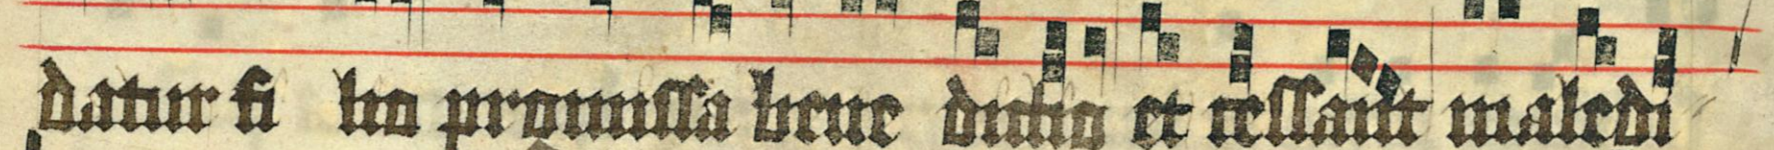 datur fi lio promissa bene dictio et cessant maledi